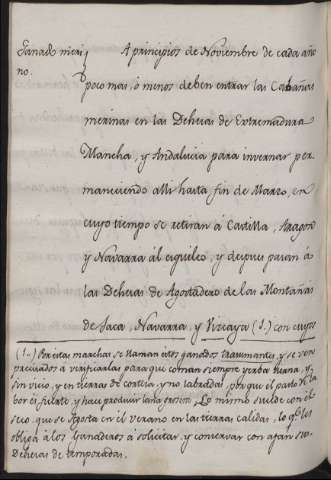 Ganado meri
no.
A principios de Noviembre de cada año
poco mas, ó menos deben entrar las Cabañas
merinas en las Dehesas de Extremadura
Mancha, y Andalucia para invernar per
maneciendo alli hasta fin de Marzo, en
cuyo tiempo se retiran á Castilla, Aragon
y Navarra al esquileo, y depues pasan á
las Dehesas de Agostadero de las Montañas
de Jaca, Navarra, y Vizcaya (1.) con cuyos
(1.) Por estas marchas se llaman estos ganados trasumantes, y se ven
precisados á verificarlas para que coman siempre yerba tierna, y
sin vicio, y en tierras de corteza y no labradas, porque el pasto de la
bor es fuerte y hace producir lana grosera. Lo mismo sucede con el
seco, que se Agosta en el verano en las tierras calidas, lo que los
obliga á los Ganaderos á solicitar, y conservar con afan sus
Dehesas de temporadas.